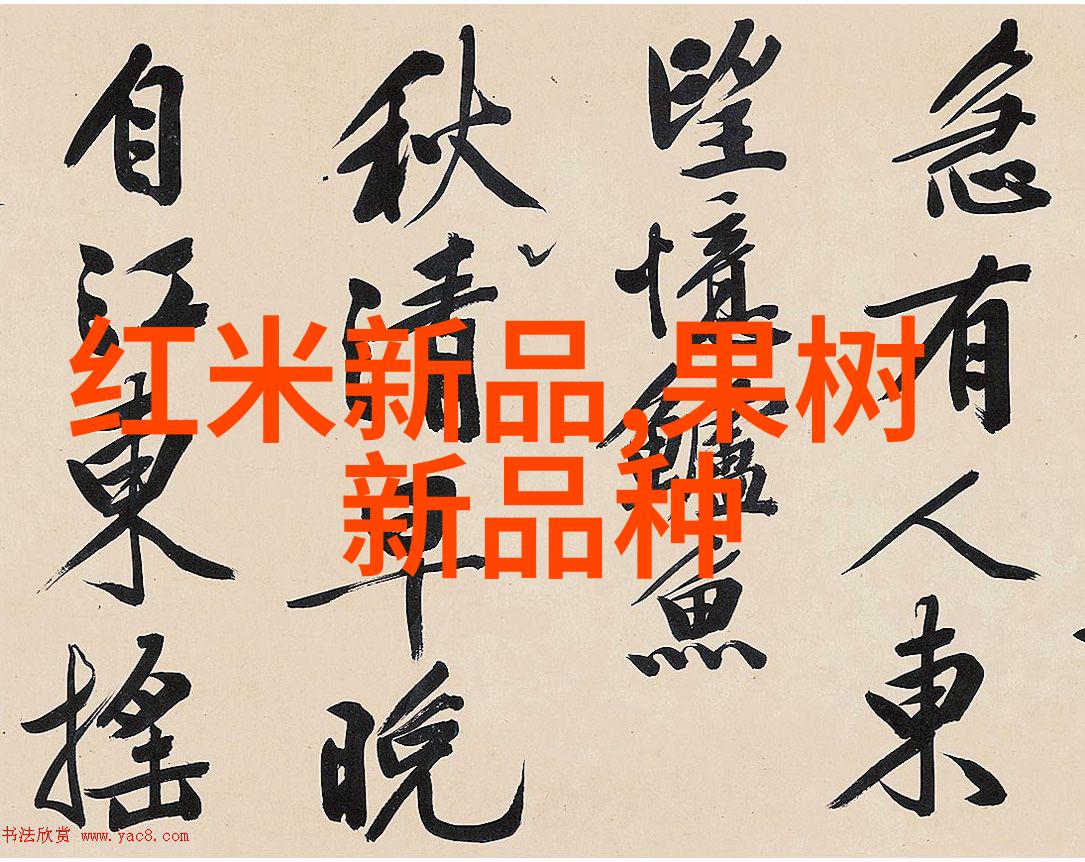 急有人東
望憶鱸魚
秋清晚
自江東搖
红米新品,果树
新品种
书法欣赏 www.yac8.com